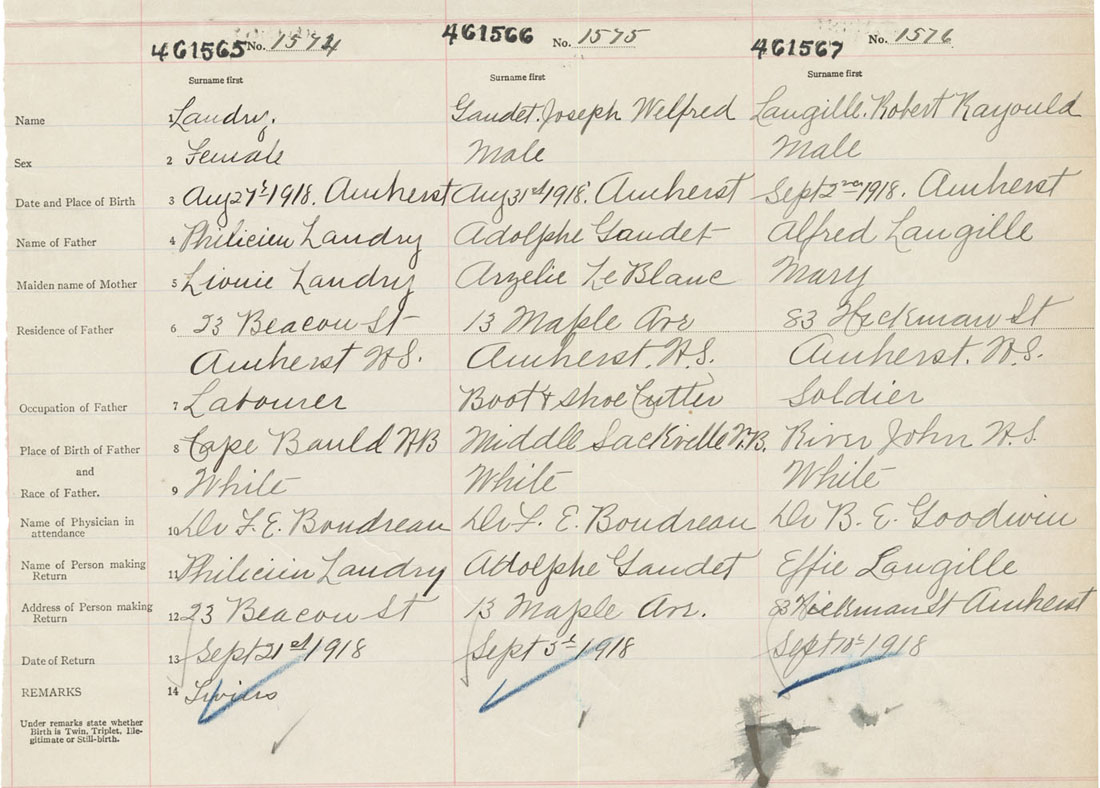 461565 No. 1574 461566 No. 1575 461567 No. 1576
Surname first Surname first Surname first
Name 1 Landry. Gaudet. Joseph Welfred Langille. Robert Rayould
Sex 2 Female Male Male
Date and Place of Birth 3 Aug 27th 1918. Amherst Aug 31st 1918. Amherst Sept 2nd 1918. Amherst
Name of Father 4 Philicien Landry Adolphe Gaudet Alfred Langille
Maiden name of Mother 5 Livnie Landry Arzelie LeBlanc Mary
Residence of Father 6 23 Beacon St 13 Maple Ave 83 Hickman St
Amherst N.S. Amherst. N.S. Amherst. N.S.
Occupation of Father 7 Labourer Boot & Shoe Cutter Soldier
Place of Birth of Father 8 Cape Bauld NB Middle Sackville N.B. River John N.S.
and
Race of Father. 9 White White White
Name of Physician in attendance 10 Dr F. E. Boudreau Dr F. E. Boudreau Dr B. E. Goodwin
Name of Person making Return 11 Philicien Landry Adolphe Gaudet Effie Langille
Address of Person making Return 12 23 Beacon St 13 Maple Ave. 83 Hickman St Amherst
Date of Return 13 Sept 21st 1918 Sept 5th 1918 Sept 10th 1918
REMARKS 14 Twins
Under remarks state whether
Birth is Twin, Triplet, Ille-
gitimate or Still-birth.